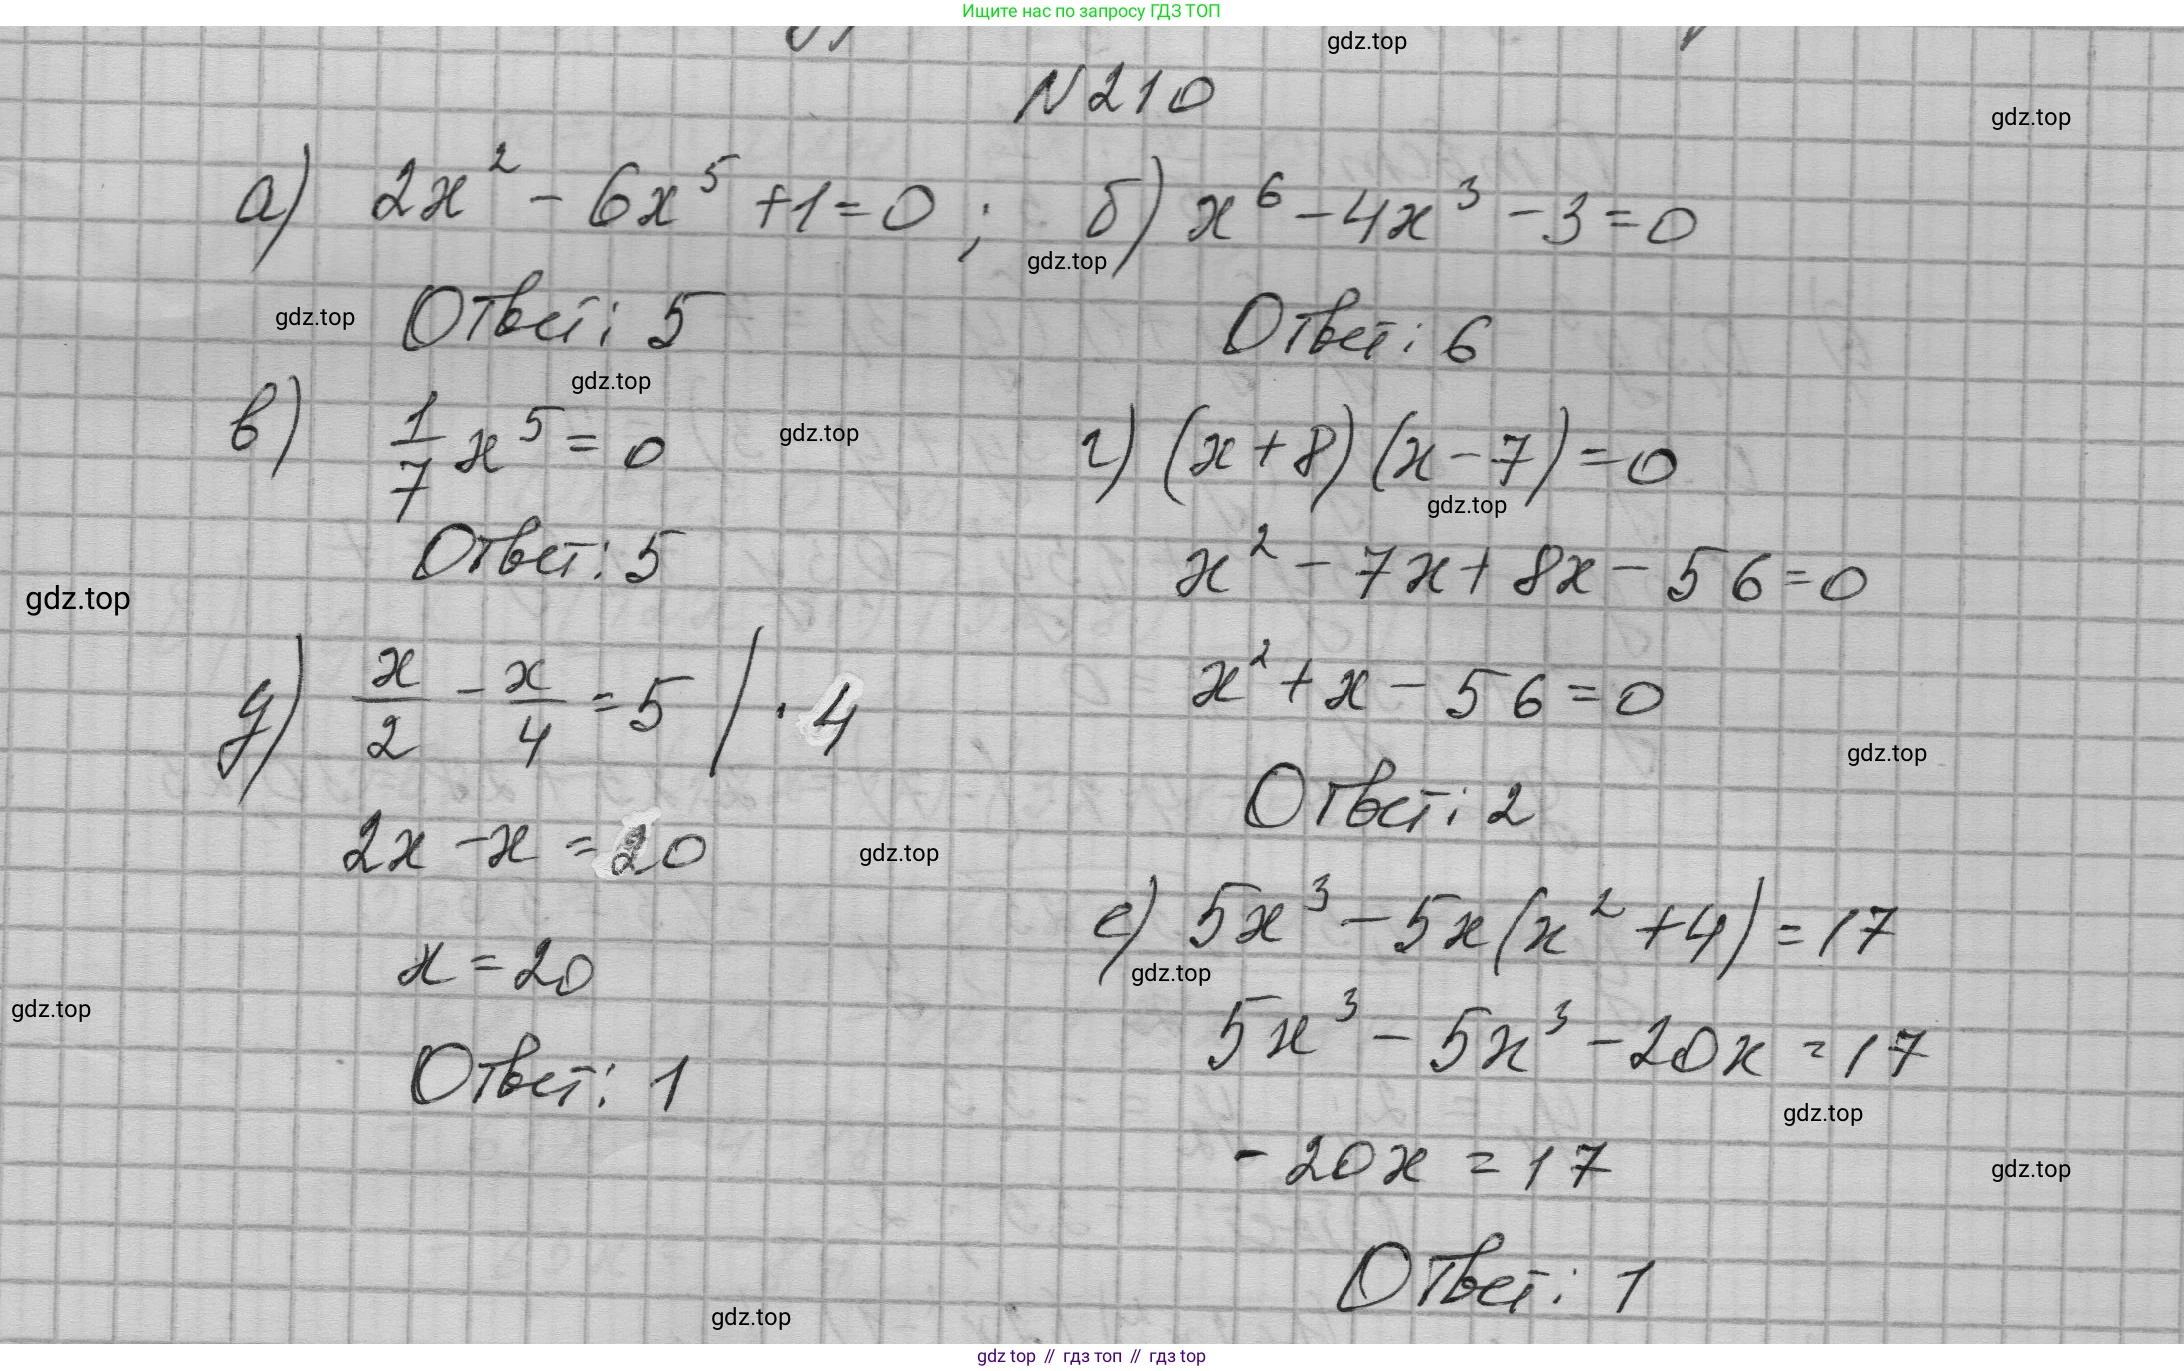 Ищите нас по запросу ГДЗ ТОП
gdz.top
N210
gdz.top
а) 2x² - 6x⁵ + 1 = 0 ; б) x⁶ - 4x³ - 3 = 0
gdz.top
Ответ: 5
Ответ: 6
gdz.top
gdz.top
в) 1/7 x⁵ = 0
г) (x + 8)(x - 7) = 0
gdz.top
gdz.top
Ответ: 5
x² - 7x + 8x - 56 = 0
gdz.top
д) x/2 - x/4 = 5 / · 4
x² + x - 56 = 0
gdz.top
Ответ: 2
2x - x = 20
gdz.top
е) 5x³ - 5x(x² + 4) = 17
x = 20
gdz.top
gdz.top
5x³ - 5x³ - 20x = 17
Ответ: 1
gdz.top
- 20x = 17
gdz.top
Ответ: 1
gdz.top
gdz top // гдз топ // гдз top